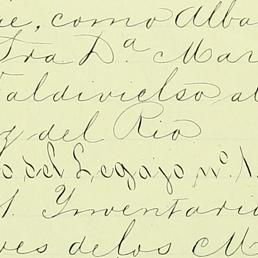 como Alba
Sra D.ª Mar
Valdivielso al
y del Rio
o del Legajo nº. 1.
1. Ynventario
res de los M